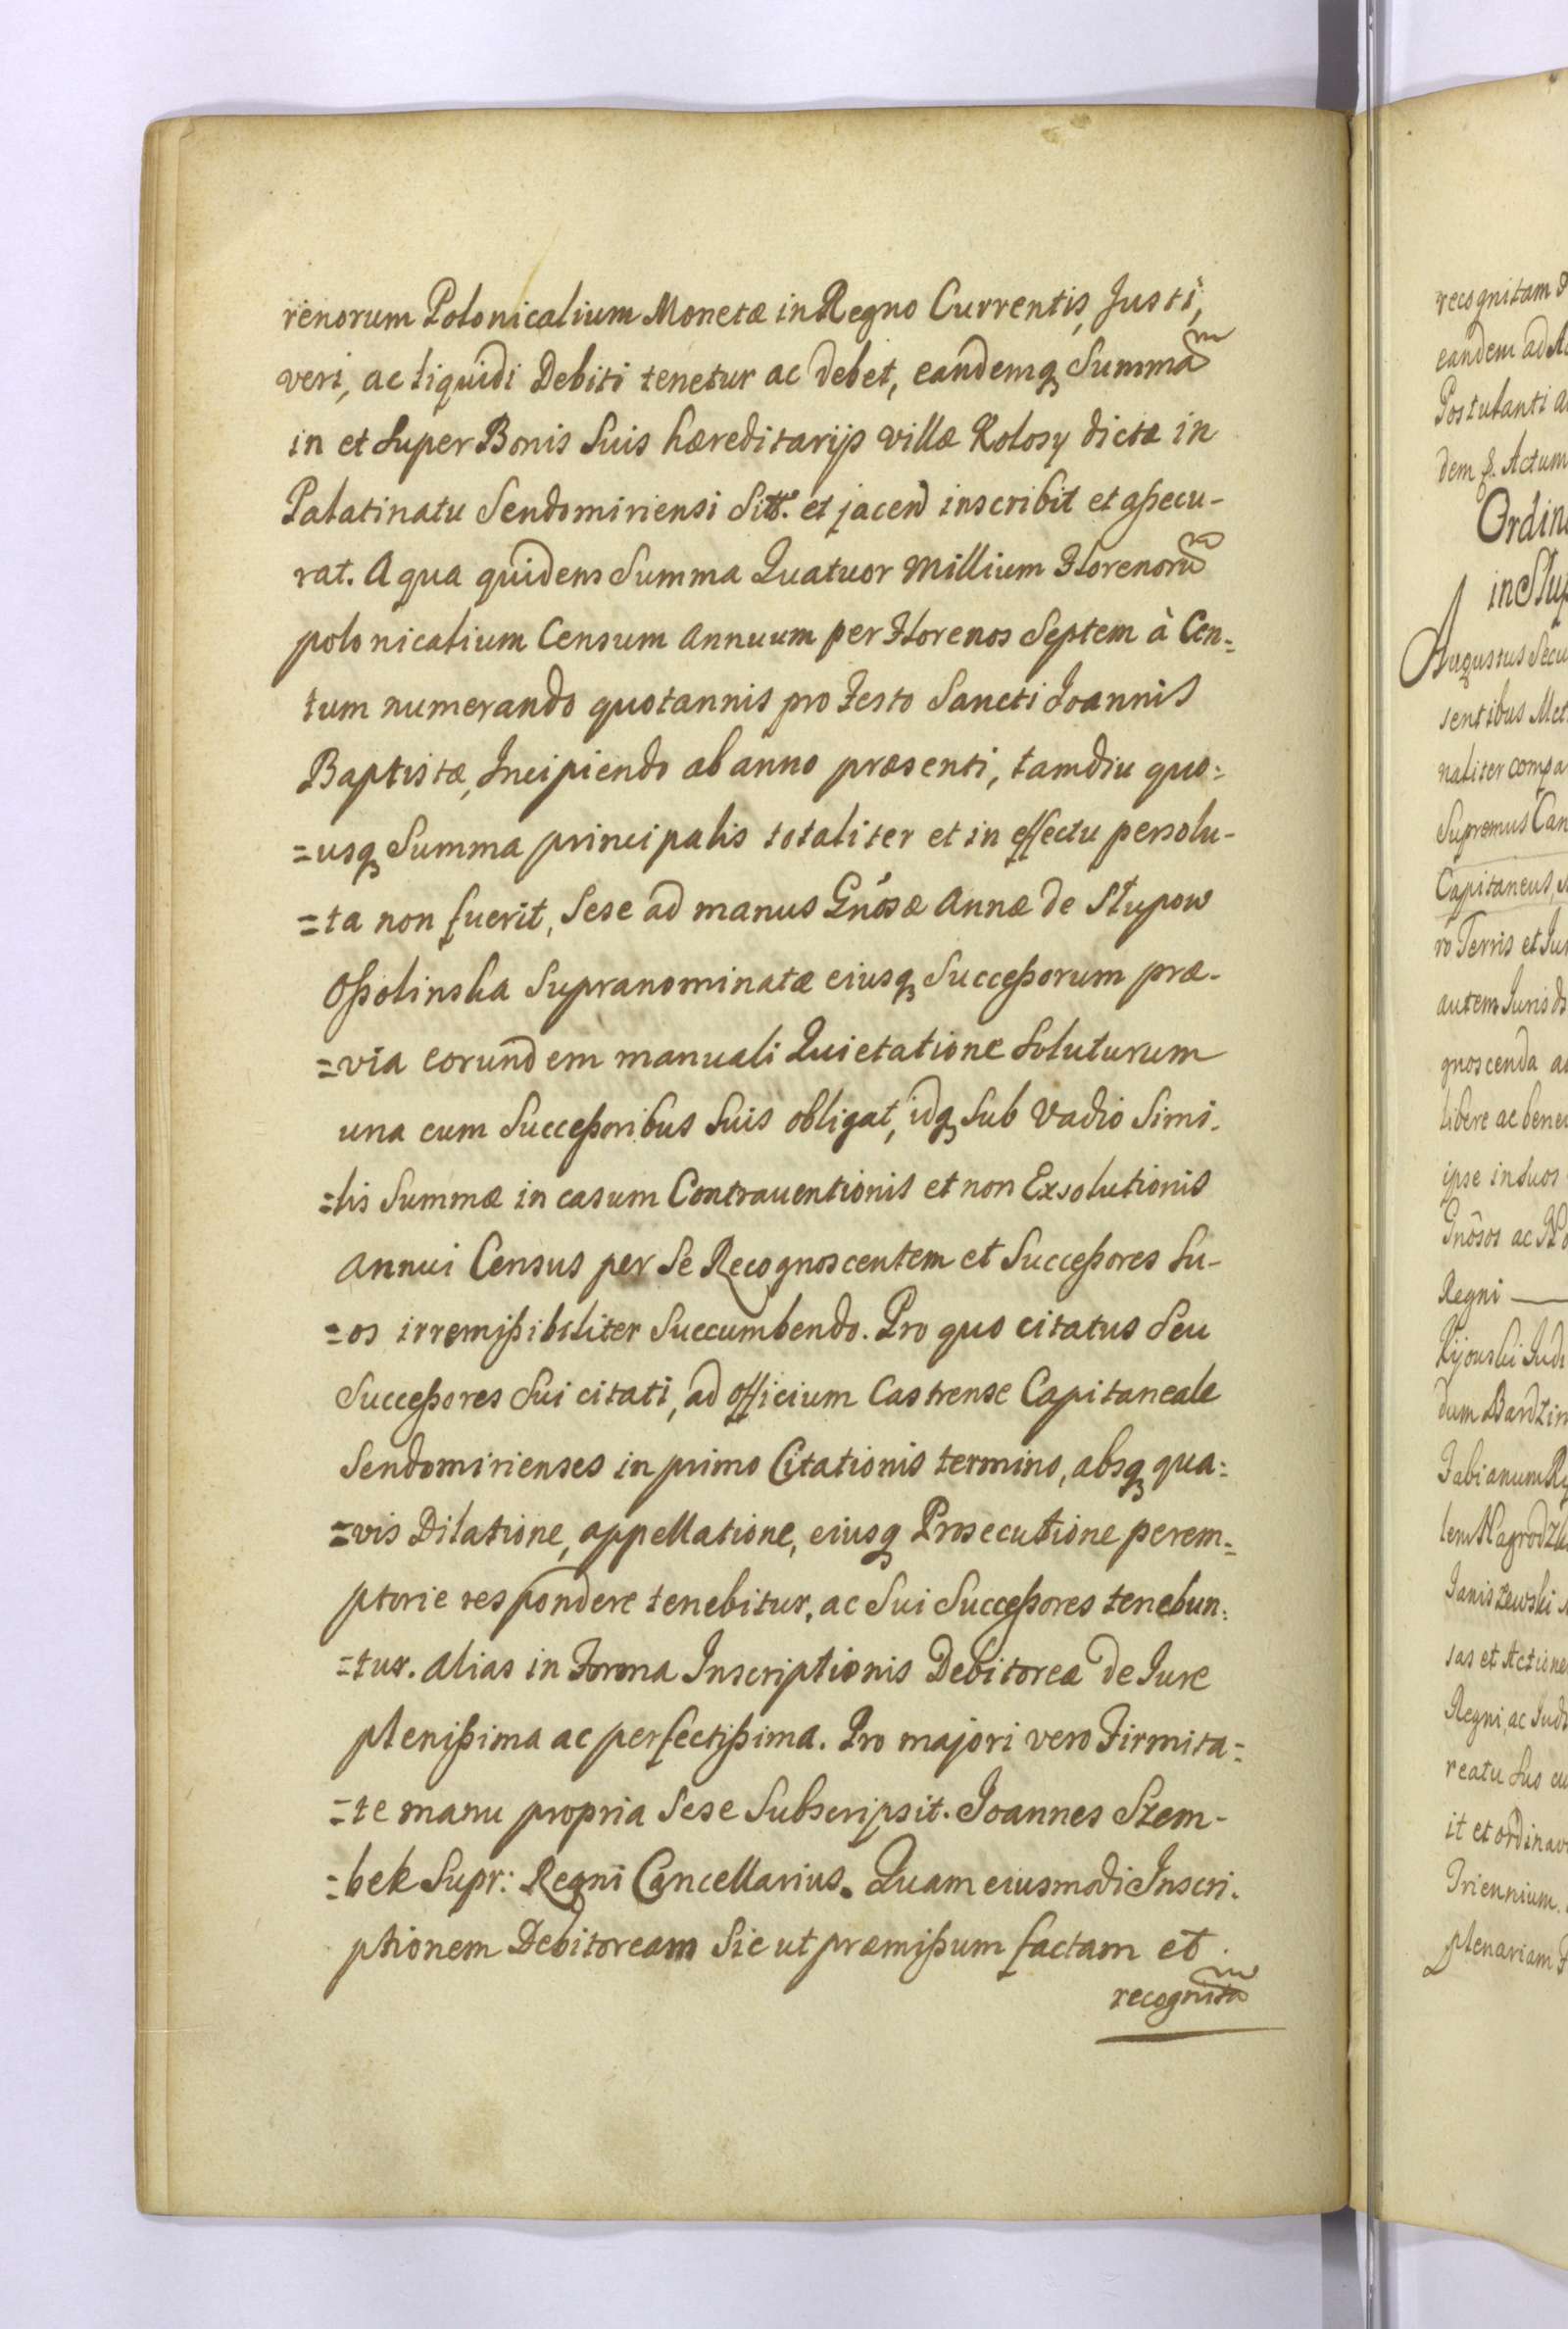 renorum Polonicalium Monetæ in Regno Currentis, Justi,
veri, ac liquidi Debiti tenetur ac debet, eandemq; Summam
in et super Bonis suis hæreditarijs villæ Kolosy dictæ in
Palatinatu Sendomiriensi Sitt. et jacend inscribit et aßecu-
rat. A qua quidem Summa Quatuor Millium Florenorum
polonicalium Censum annuum per Florenos Septem à Cen=
tum numerando quotannis pro Festo Sancti Joannis
Baptistæ, Incipiendo ab anno præsenti, tamdiu quo=
=usq; Summa principalis totaliter et in effectu persolu-
=ta non fuerit, Sese ad manus Gnósæ Annæ de Stupow
Oßolinska Supranominatæ eiusq; Succeßorum præ-
=via eorundem manuali Quietatione Soluturum
una cum Succeßoribus Suis obligat, idq; Sub Vadio Simi-
=lis Summæ in casum Contrauentionis et non Exsolutionis
annui Census per Se Recognoscentem et Succeßores Su-
=os irremißibiliter Succumbendo. Pro quo citatus Seu
Succeßores Sui citati, ad officium Castrense Capitaneale
Sendomirienses in primo Citationis termino, absq; qua=
=vis Dilatione, appellatione, eiusq; Prosecutione perem=
ptorie respondere tenebitur, ac Sui Succeßores tenebun=
=tur. alias in Forma Inscriptionis Debitorea de Jure
plenißima ac perfectißima. Pro majori vero Firmita=
=te manu propria Sese Subscripsit. Joannes Szem-
=bek Supr: Regni Cancellarius. Quam eiusmodi Inscri-
ptionem Debitoream Sic ut præmißum factam et
recognitam
recognitam
eandem ad
Postulanti
dem
Actum
in Stup
Augustus Secu
sentibus Met
naliter compa
Supremus Can
Capitaneus,
ro Terris et
autem
gnoscenda
libere ac bene
ipse in suos
Gnôsos ac
Regni
Kijouski Judi
dum Bardzin
Fabianum
Janiszewski
sas et Actione
Regni, ac Judi
reatu suo
it et ordinav
Triennium.
plenariam